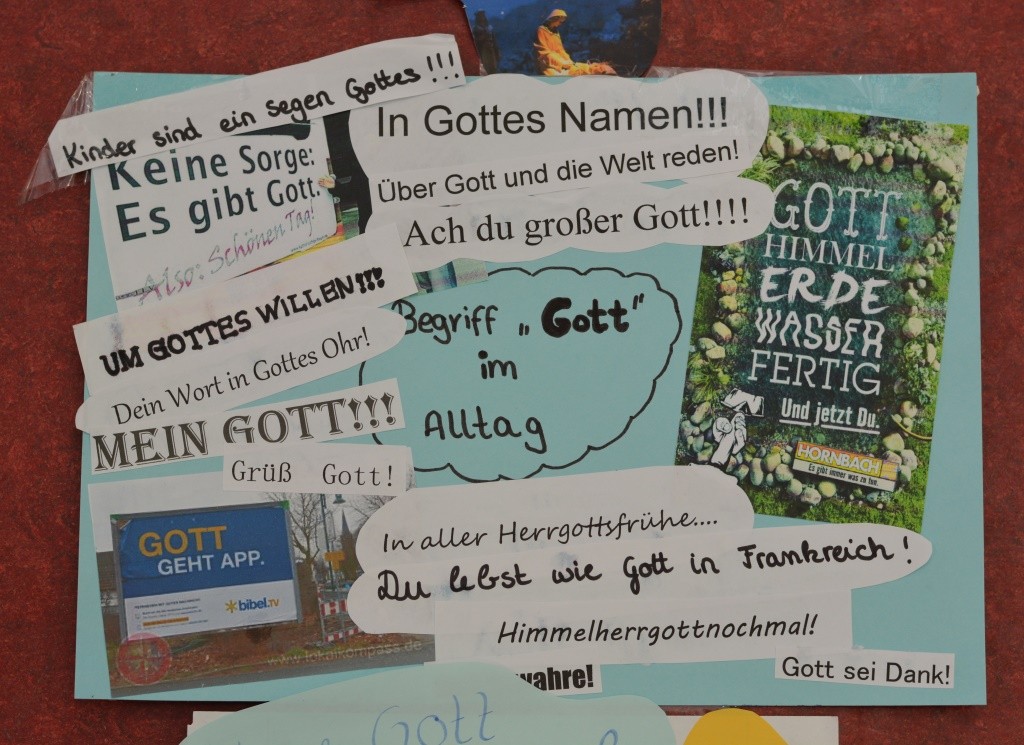 Kinder sind ein segen Gottes!!!
Keine Sorge:
Es gibt Gott.
Also: Schönen Tag!
In Gottes Namen!!!
Über Gott und die Welt reden!
Ach du großer Gott!!!!
UM GOTTES WILLEN!!!
Dein Wort in Gottes Ohr!
MEIN GOTT!!!
Grüß Gott!
Begriff „Gott"
im
Alltag
GOTT
HIMMEL
ERDE
WASSER
FERTIG
Und jetzt Du.
HORNBACH
Es gibt immer was zu tun.
GOTT
GEHT APP.
bibel.TV
www.lokalkompass.de
In aller Herrgottsfrühe....
Du lebst wie Gott in Frankreich!
Himmelherrgottnochmal!
wahre!
Gott sei Dank!
Gott